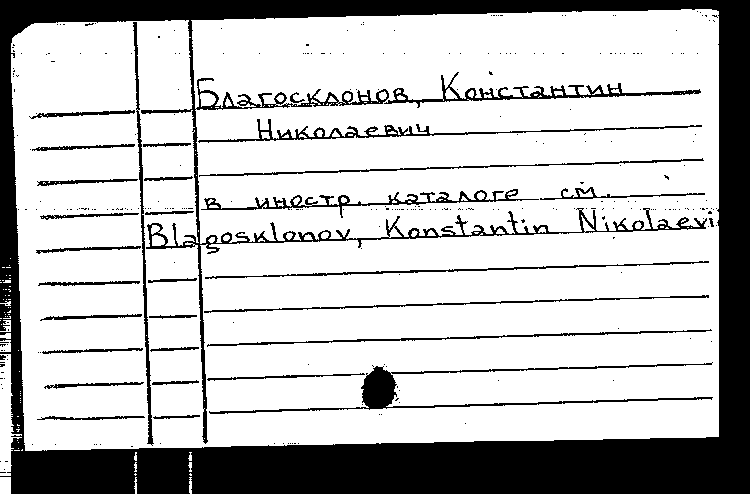 Благосклонов, Константин
Николаевич
в иностр. каталоге см.
Blagosklonov, Konstantin Nikolaevi